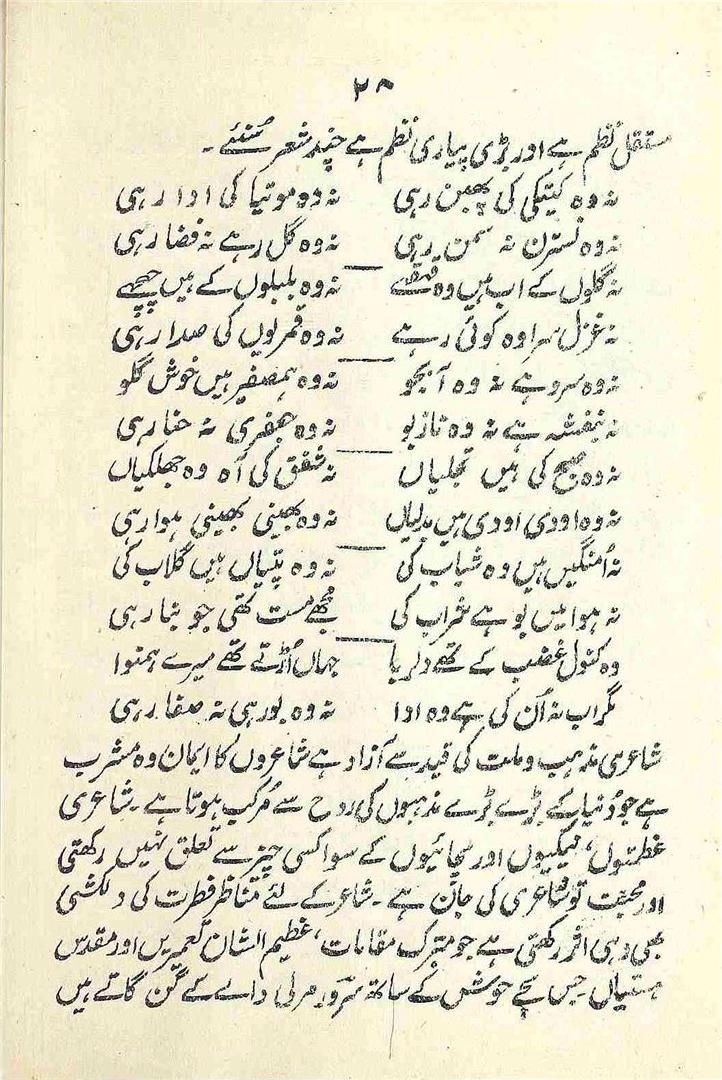 ۲۸
مستقل نظم ہے اور بڑی پیاری نظم ہے چند شعر سُنئے ۔
نہ وہ کیتکی کی پھبن رہی نہ وہ موتیا کی ادا رہی
نہ وہ نسترن نہ سمن رہی نہ وہ گل رہے نہ فضا رہی
نہ گلوں کے اب ہیں وہ قہقہے نہ وہ بلبلوں کے ہیں چہچہے
نہ غزل سرا وہ کوئی رہے نہ وہ قمریوں کی صدا رہی
نہ وہ سرو ہے نہ وہ آبجو نہ وہ ہمصفیر ہیں خوش گلو
نہ بنفشہ ہے نہ وہ نازبو نہ وہ جعفری نہ حنا رہی
نہ وہ صبح کی ہیں تجلیاں نہ شفق کی آہ وہ جھلکیاں
نہ وہ اودی اودی ہیں بدلیاں نہ وہ بھینی بھینی ہوا رہی
نہ اُمنگیں ہیں وہ شباب کی نہ وہ پتیاں ہیں گلاب کی
نہ ہوا میں بو ہے شراب کی مجھے مست تھی جو بنا رہی
وہ کنول غضب کے تھے دلربا جہاں اُڑتے تھے میرے ہمنوا
مگر اب نہ اُن کی ہے وہ ادا نہ وہ بو رہی نہ صفا رہی
شاعری مذہب و ملت کی قید سے آزاد ہے شاعروں کا ایمان وہ مشرب
ہے جو دُنیا کے بڑے بڑے مذہبوں کی روح سے مُرکب ہوتا ہے ۔ شاعری
عظمتوں، نیکیوں اور سچائیوں کے سوا کسی چیز سے تعلق نہیں رکھتی
اور محبت تو شاعری کی جان ہے ۔ شاعر کے لئے مناظر فطرت کی دلکشی
بھی وہی اثر رکھتی ہے جو متبرک مقامات، عظیم الشان تعمیریں اور مقدس
ہستیاں جس سچے جوش کے ساتھ سرور مرلی والے کے گن گاتے ہیں